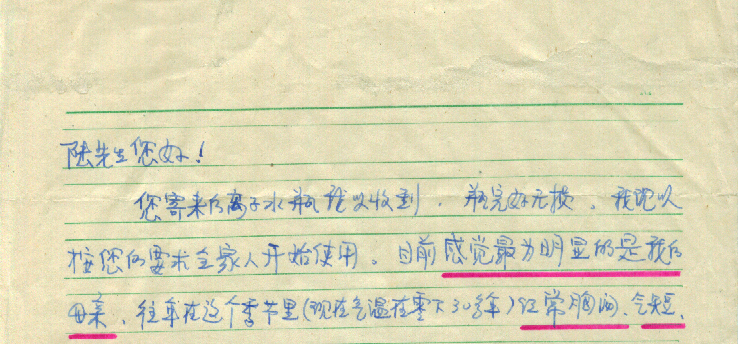 陆先生您好！
您寄来的离子水瓶我以收到，瓶完好无损。我现以
按您的要求全家人开始使用。目前感觉最为明显的是我的
母亲，往年在这个季节里（现在气温在零下30多年）经常胸闷、气短，